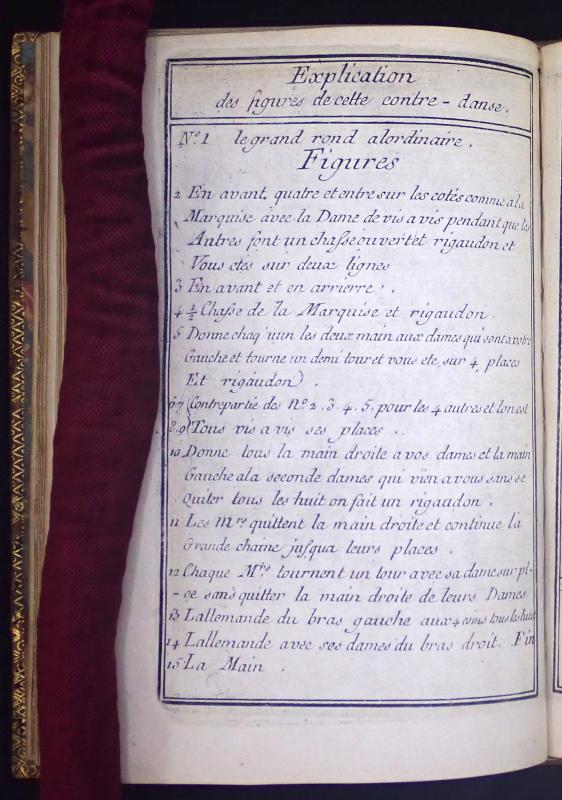 Explication
des figures de cette contre-danse.
No. 1 le grand rond alordinaire.
Figures
2 En avant, quatre et entre sur les cotés comme a la
Marquise avec la Dame de vis a vis pendant que les
Autres font un chasse ouvert et rigaudon et
Vous etes sur deux lignes
3 En avant et en arrierre.
4 ½ Chasse de la Marquise et rigaudon.
5 Donne chaq'uun les deux main aux dames qui sont a votre
Gauche et tourne un demi tour et vous ete sur 4 places
Et rigaudon.
6.7 Contrepartie des No. 2. 3. 4. 5. pour les 4 autres et lon est
8.9 Tous vis a vis ses places.
10 Donne tous la main droite a vos dames et la main
Gauche a la seconde dames qui vien a vous sans se
Quiter tous les huit on fait un rigaudon.
11 Les Mrs quittent la main droite et continue la
Grande chaine jusqua leurs places.
12 Chaque Mrs tournent un tour avec sa dame sur pl-
-ce sans quitter la main droite de leurs Dames
13 Lallemande du bras gauche aux 4 coins tous les huit
14 Lallemande avec ses dames du bras droit. Fin
15 La Main.